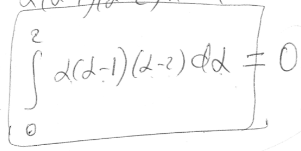 ∫₀² α(α-1)(α-2) dα = 0